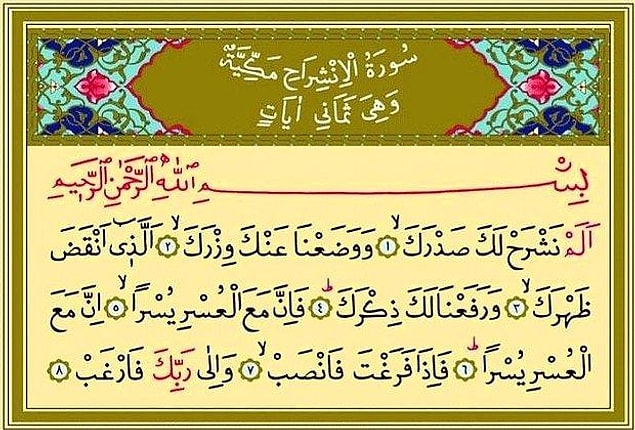 سُورَةُ الْاِنْشِرَاحِ مَكِّيَّةٌ
وَهِىَ ثَمَانِى اٰيَاتٍ
بِسْمِ اللّٰهِ الرَّحْمٰنِ الرَّحٖيمِ
اَلَمْ نَشْرَحْ لَكَ صَدْرَكَۙ ﴿١﴾ وَوَضَعْنَا عَنْكَ وِزْرَكَۙ ﴿٢﴾ اَلَّذٖٓى اَنْقَضَ
ظَهْرَكَۙ ﴿٣﴾ وَرَفَعْنَا لَكَ ذِكْرَكَؕ ﴿٤﴾ فَاِنَّ مَعَ الْعُسْرِ يُسْراًۙ ﴿٥﴾ اِنَّ مَعَ
الْعُسْرِ يُسْراًؕ ﴿٦﴾ فَاِذَا فَرَغْتَ فَانْصَبْۙ ﴿٧﴾ وَاِلٰى رَبِّكَ فَارْغَبْ ﴿٨﴾